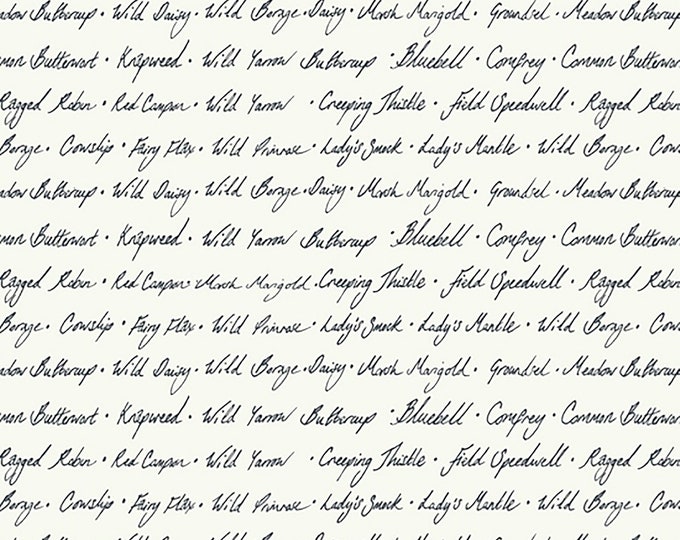 Meadow Buttercup · Wild Daisy · Wild Borage · Daisy · Marsh Marigold · Groundsel · Meadow Buttercup
mmon Butterwort · Knapweed · Wild Yarrow Buttercup · Bluebell · Comfrey · Common Butterwor
Ragged Robin · Red Campion · Wild Yarrow · Creeping Thistle · Field Speedwell · Ragged Robin
Borage · Cowslip · Fairy Flax · Wild Primrose · Lady's Smock · Lady's Mantle · Wild Borage · Cow
adow Buttercup · Wild Daisy · Wild Borage · Daisy · Marsh Marigold · Groundsel · Meadow Buttercup
mmon Butterwort · Knapweed · Wild Yarrow Buttercup · Bluebell · Comfrey · Common Butterwor
Ragged Robin · Red Campion · Marsh Marigold · Creeping Thistle · Field Speedwell · Ragged Robin
Borage · Cowslip · Fairy Flax · Wild Primrose · Lady's Smock · Lady's Mantle · Wild Borage · Cow
adow Buttercup · Wild Daisy · Wild Borage · Daisy · Marsh Marigold · Groundsel · Meadow Buttercup
mmon Butterwort · Knapweed · Wild Yarrow · Buttercup · Bluebell · Comfrey · Common Butterwor
Ragged Robin · Red Campion · Wild Yarrow · Creeping Thistle · Field Speedwell · Ragged Robin
Borage · Cowslip · Fairy Flax · Wild Primrose · Lady's Smock · Lady's Mantle · Wild Borage · Cow